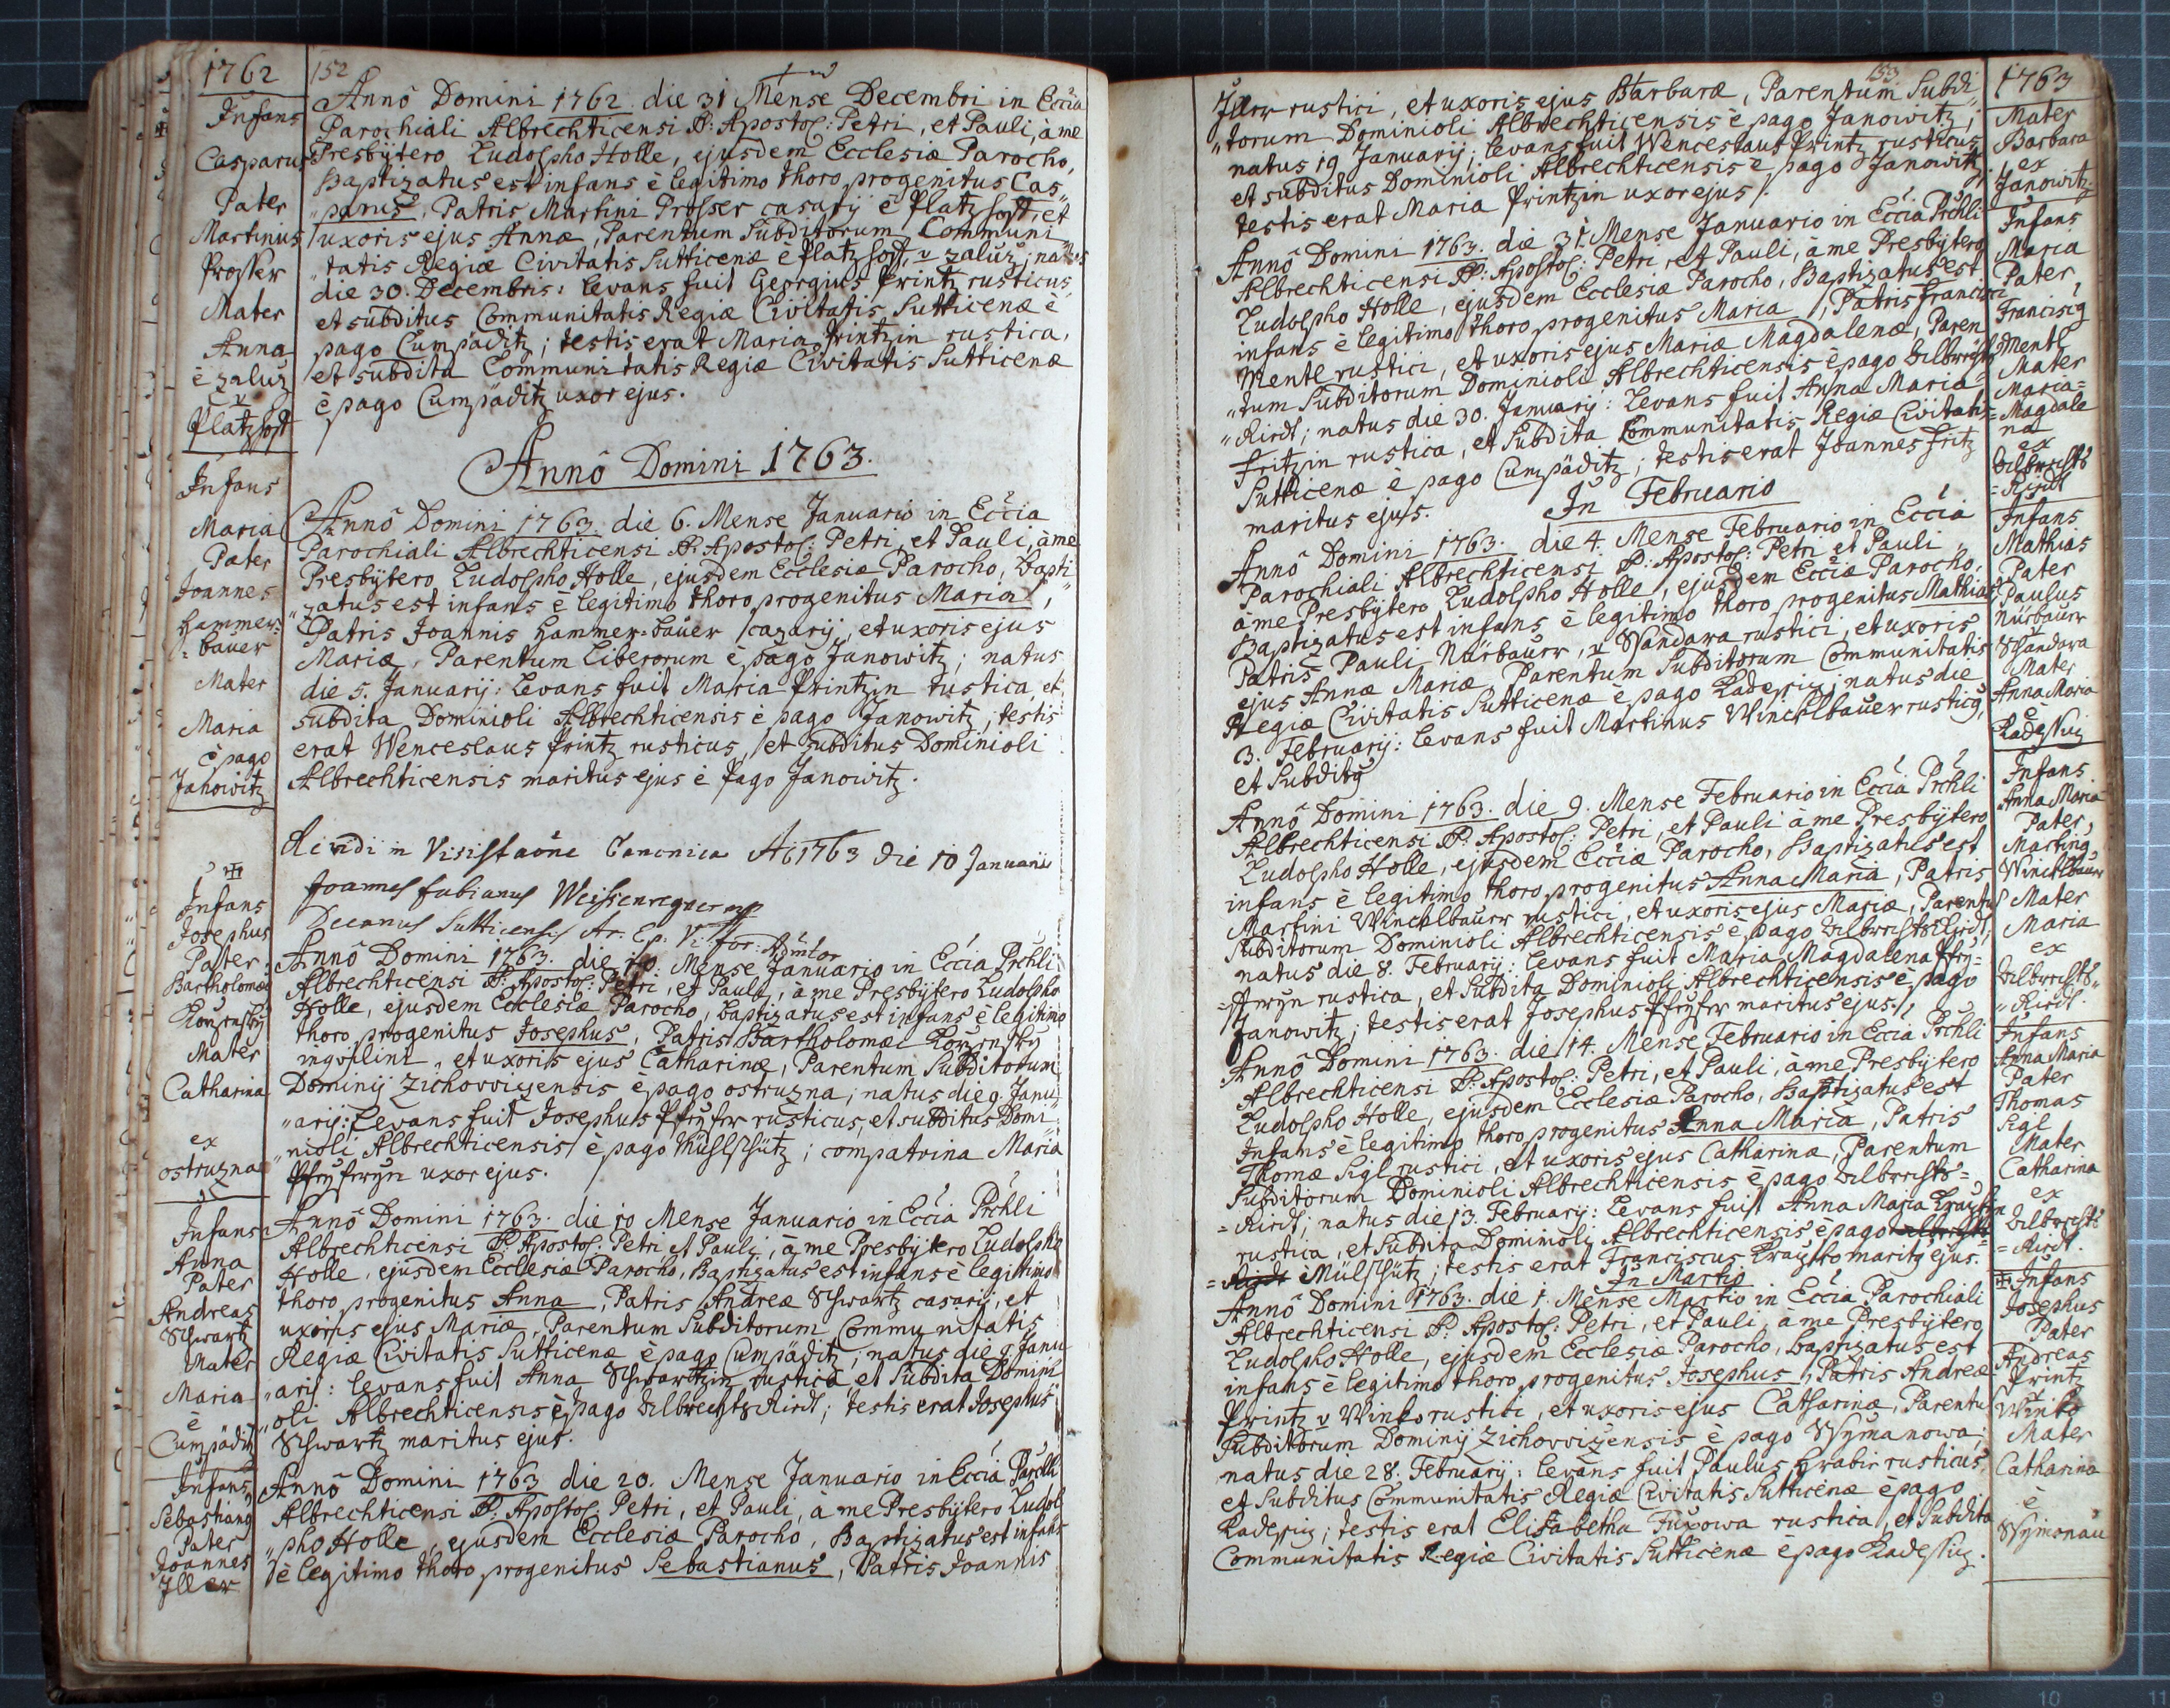 1762
152
Infans
Casparus
Pater
Martinus
Prosser
Mater
Anna
è zaluz
v
Platzhoff
Annô Domini 1762. die 31 Mense Decembri in Eccia
Parochiali Albrechticensi SS: Apostol: Petri, et Pauli, à me
Presbÿtero Ludolpho Holle, ejusdem Ecclesiæ Parocho,
Baptizatus est infans è legitimo thoro progenitus Cas„
„parus, Patris Martini Prosser casarÿ è Platzhoff, et
uxoris ejus Annæ, Parentum Subditorum Communi„
„tatis Regiæ Civitatis Sutticenæ è Platzhoff, v zaluz; natus
die 30. Decembris: Levans fuit Georgius Printz rusticus,
et subditus Communitatis Regiæ Civitatis Sutticenæ è
pago Cumpäditz; testis erat Maria Printzin rustica,
et subdita Communitatis Regiæ Civitatis Sutticenæ
è pago Cumpäditz uxor ejus.
Annô Domini 1763.
Infans
Maria
Pater
Joannes
Hammer=
=bauer
Mater
Maria
è pago
Janowitz
Annô Domini 1763. die 6. Mense Januario in Eccia
Parochiali Albrechticensi SS: Apostol: Petri, et Pauli, à me
Presbÿtero Ludolpho Holle, ejusdem Ecclesiæ Parocho, Bapti„
„zatus est infans è legitimo thoro progenitus Maria,
Patris Joannis Hammer=bauer cazarÿ, et uxoris ejus
Mariæ, Parentum Liberorum è pago Janowitz; natus
die 5. Januarÿ: Levans fuit Maria Printzin rustica, et
subdita Dominioli Albrechticensis è pago Janowitz; testis
erat Wenceslaus Printz rusticus, et subditus Dominioli
Albrechticensis maritus ejus è Pago Janowitz.
die 10 Januarii
Joannes Fabianus
Decanus Sutticensis
Infans
Josephus
Pater
Bartholomæ
Mater
Catharina
ex
ostruzna
Annô Domini 1763. die 10. Mense Januario in Eccia Prchli
Albrechticensi SS: Apostol: Petri, et Pauli, à me Presbÿtero Ludolpho
Holle, ejusdem Ecclesiæ Parocho, baptizatus est infans è legitimo
thoro progenitus Josephus, Patris Bartholomæi
inqvilini, et uxoris ejus Catharinæ, Parentum Subditorum
Dominÿ Zichovvizensis è pago ostruzna; natus die 9. Janu„
„arÿ: Levans fuit Josephus Pfeÿfer rusticus, et subditus Domi„
„nioli Albrechticensis è pago Mühlschütz; compatrina Maria
Pfeÿferÿn uxor ejus.
Infans
Anna
Pater
Andreas
Schwartz
Mater
Maria
è
Cumpäditz
Annô Domini 1763. die 10 Mense Januario in Eccia Prchli
Albrechticensi SS: Apostol: Petri et Pauli, à me Presbÿtero Ludolpho
Holle, ejusdem Ecclesiæ Parocho, Baptizatus est infans è legitimo
thoro progenitus Anna, Patris Andreæ Schwartz casarÿ, et
uxoris ejus Mariæ, Parentum Subditorum Communitatis
Regiæ Civitatis Sutticenæ è pago Cumpäditz; natus die 9. Janu
„arÿ: Levans fuit Anna Schwartzin rustica, et Subdita Domini
„oli Albrechticensis è pago Vilbrechts Riedt; testis erat Josephus
Schwartz maritus ejus.
Infans
Sebastiang
Pater
Joannes
Iller
Annô Domini 1763 die 20. Mense Januario in Eccia Parchli
Albrechticensi SS: Apostol: Petri, et Pauli, à me Presbÿtero Ludol
„pho Holle, ejusdem Ecclesiæ Parocho, Baptizatus est infans
è legitimo thoro progenitus Sebastianus, Patris Joannis
153
1763
Mater
Barbara
ex
Janowitz
Iller rustici, et uxoris ejus Barbaræ, Parentum Subdi„
„torum Dominioli Albrechticensis è pago Janowitz;
natus 19 Januarÿ: Levans fuit Wenceslaus Printz rusticus,
et subditus Dominioli Albrechticensis è pago Janowitz,
testis erat Maria Printzin uxor ejus.
Infans
Maria
Pater
Franciscg
Mentl
Mater
Maria=
=Magdale
na
ex
Vilbrechts
=Riedt
Annô Domini 1763. die 31. Mense Januario in Eccia Prchli
Albrechticensi SS: Apostol: Petri, et Pauli, à me Presbÿtero
Ludolpho Holle, ejusdem Ecclesiæ Parocho, Baptizatus est
infans è legitimo thoro progenitus Maria, Patris Francisci
Mentl rustici, et uxoris ejus Mariæ Magdalenæ, Paren
„tum Subditorum Dominioli Albrechticensis è pago Vilbrechts
„Riedt; natus die 30. Januarÿ: Levans fuit Anna Maria
Fritzin rustica, et Subdita Communitatis Regiæ Civitatis
Sutticenæ è pago Cumpäditz; testis erat Joannes Fritz
maritus ejus.
In Februario
Infans
Mathias
Pater
Paulus
Nürbauer
Schandara
Mater
Anna Maria
è
Annô Domini 1763. die 4. Mense Februario in Eccia
Parochiali Albrechticensi SS: Apostol: Petri et Pauli,
à me Presbÿtero Ludolpho Holle, ejusdem Ecciæ Parocho,
Baptizatus est infans è legitimo thoro progenitus Mathias
Patris Pauli Nürbauer, v Schandara rustici, et uxoris
ejus Annæ Mariæ, Parentum Subditorum Communitatis
Regiæ Civitatis Sutticenæ è pago Kadeßitz; natus die
3. Februarÿ: Levans fuit Martinus Wincklbauer rusticg,
et Subditg
Infans
Anna Maria
Pater
Marting
Wincklbauer
Mater
Maria
ex
Vilbrechts„
„Riedt
Annô Domini 1763. die 9. Mense Februario in Eccia Prchli
Albrechticensi SS: Apostol: Petri, et Pauli à me Presbÿtero
Ludolpho Holle, ejusdem Ecciæ Parocho, Baptizatus est
infans è legitimo thoro progenitus Anna Maria, Patris
Martini Wincklbauer rustici, et uxoris ejus Mariæ, Parentu
Subditorum Dominioli Albrechticensis è pago Vilbrechts Riedt;
natus die 8. Februarÿ: Levans fuit Maria Magdalena Pfeÿ=
=fferÿn rustica, et Subdita Dominioli Albrechticensis è pago
Janowitz; testis erat Josephus Pfeÿfer maritus ejus.
Infans
Anna Maria
Pater
Thomas
Sigl
Mater
Catharina
ex
Vilbrechts
=Riedt.
Annô Domini 1763. die 14. Mense Februario in Eccia Prchli
Albrechticensi SS: Apostol: Petri, et Pauli, à me Presbÿtero
Ludolpho Holle, ejusdem Ecclesiæ Parocho, Baptizatus est
Infans è legitimo thoro progenitus Anna Maria, Patris
Thomæ Sigl rustici, et uxoris ejus Catharinæ, Parentum
Subditorum Dominioli Albrechticensis è pago Vilbrechts=
=Riedt; natus die 13. Februarÿ: Levans fuit Anna Maria
rustica, et Subdita Dominioli Albrechticensis è pago
è Mülschütz; testis erat Franciscus maritg ejus.
In Martio
Infans
Josephus
Pater
Andreas
Printz
Winko
Mater
Catharina
è
Annô Domini 1763. die 1. Mense Martio in Eccia Parochiali
Albrechticensi SS: Apostol: Petri, et Pauli, à me Presbÿtero
Ludolpho Holle, ejusdem Ecclesiæ Parocho, baptizatus est
infans è legitimo thoro progenitus Josephus, Patris Andreæ
Printz v Winko rustici, et uxoris ejus Catharinæ, Parentu
Subditorum Dominÿ Zichovvizensis è pago Schÿmanowa;
natus die 28. Februarÿ: Levans fuit Paulus Hrabie rusticus,
et Subditus Communitatis Regiæ Civitatis Sutticenæ è pago
Kadeßitz; testis erat Elisabetha Fuxowa rustica, et Subdita
Communitatis Regiæ Civitatis Sutticenæ è pago Kadeßitz.